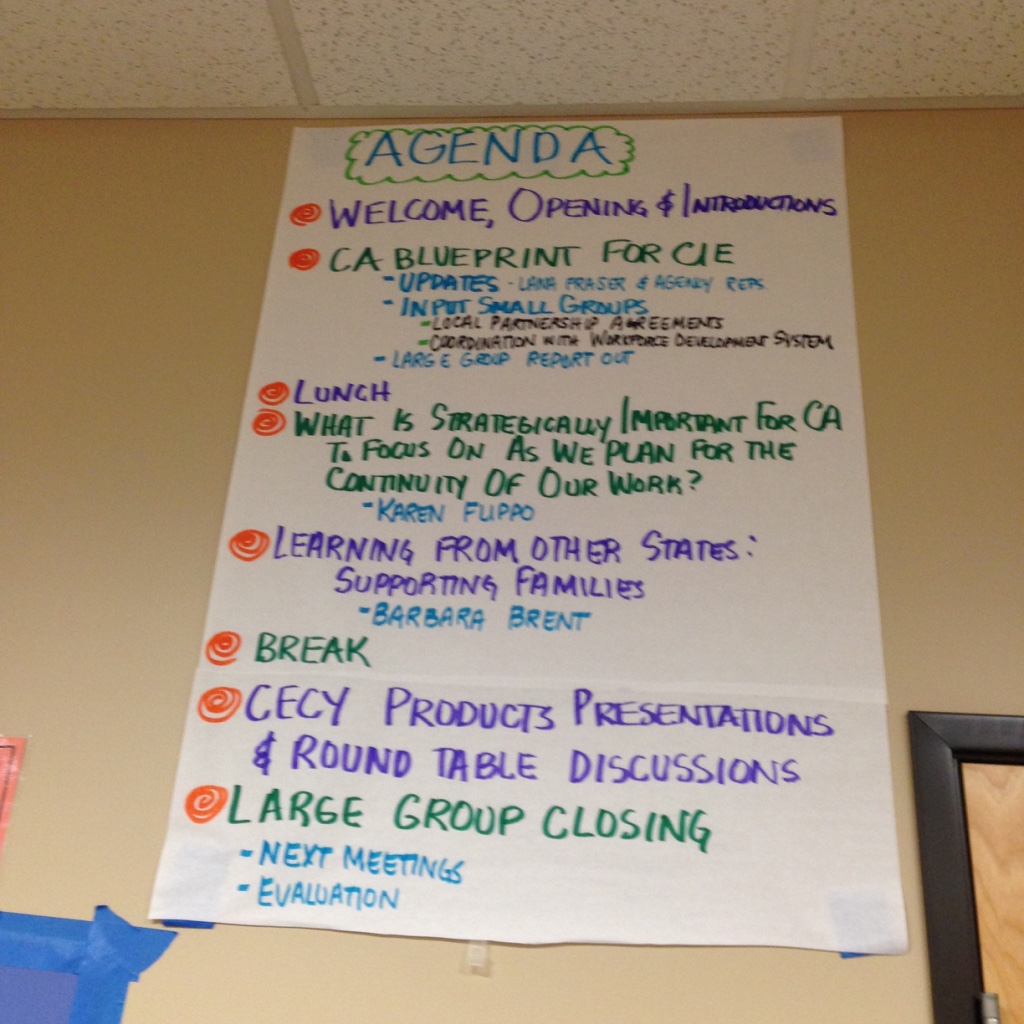 AGENDA
WELCOME, OPENING & INTRODUCTIONS
CA BLUEPRINT FOR CIE
- UPDATES - LANA FRASER & AGENCY REPS
- INPUT SMALL GROUPS
- LOCAL PARTNERSHIP AGREEMENTS
- COORDINATION WITH WORKFORCE DEVELOPMENT SYSTEM
- LARGE GROUP REPORT OUT
LUNCH
WHAT IS STRATEGICALLY IMPORTANT FOR CA
TO FOCUS ON AS WE PLAN FOR THE
CONTINUITY OF OUR WORK?
- KAREN FLIPPO
LEARNING FROM OTHER STATES:
SUPPORTING FAMILIES
- BARBARA BRENT
BREAK
CECY PRODUCTS PRESENTATIONS
& ROUND TABLE DISCUSSIONS
LARGE GROUP CLOSING
- NEXT MEETINGS
- EVALUATION